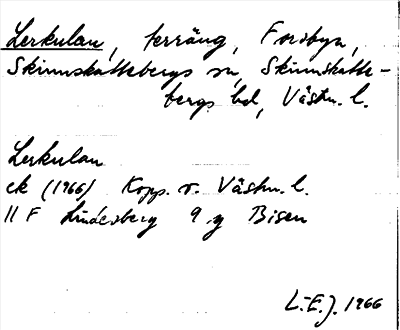 Lerkulan, terräng, Forsbyn,
Skinnskattebergs sn, Skinnskatte-
bergs bd, Västm. l.
Lerkulan
ek (1966) Kopp. o. Västm. l.
11 F Lindesberg 9 g Bisen
L-E.J. 1966